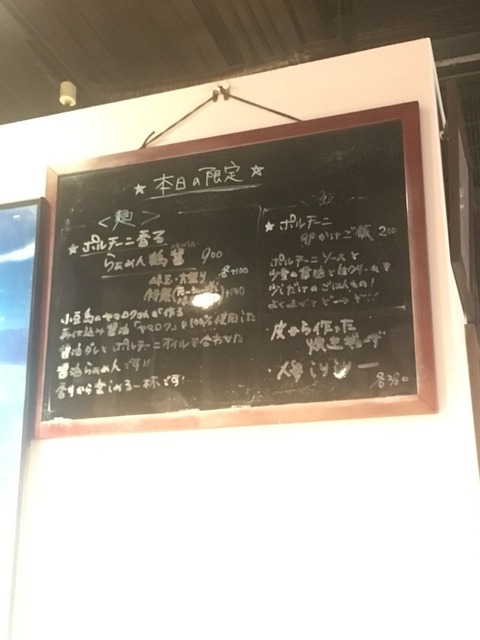 ★ 本日の限定 ★
<麺>
★ポルチーニ香る
らぁめん 醤 900
味玉・大盛り 各+100
小豆島のヤマロクさんが作る
再仕込み醤油「ヤマロク」を100%使用した
醤油ダレとポルチーニオイルを合わせた
醤油らぁめんです!!
香りから楽しめる一杯です!
★ポルチーニ
卵かけご飯 200
ポルチーニソースと
少量の醤油と
だけのごはんもの!
よくまぜてどーぞ
皮から作った
餃子
各380